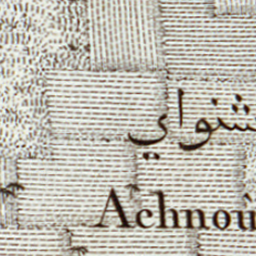 شنواي
Achnou